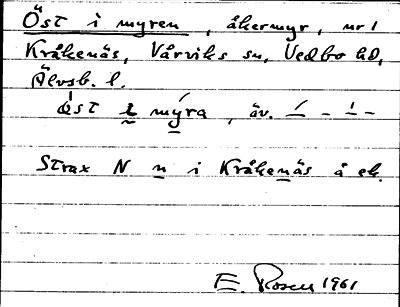 Öst i myren, åkermyr, nr 1
Kråkenäs, Vårviks sn, Vedbo hd,
Älvsb. l.
öst i myra, äv.
Strax N n i Kråkenäs å ek.
E. Rosen 1961